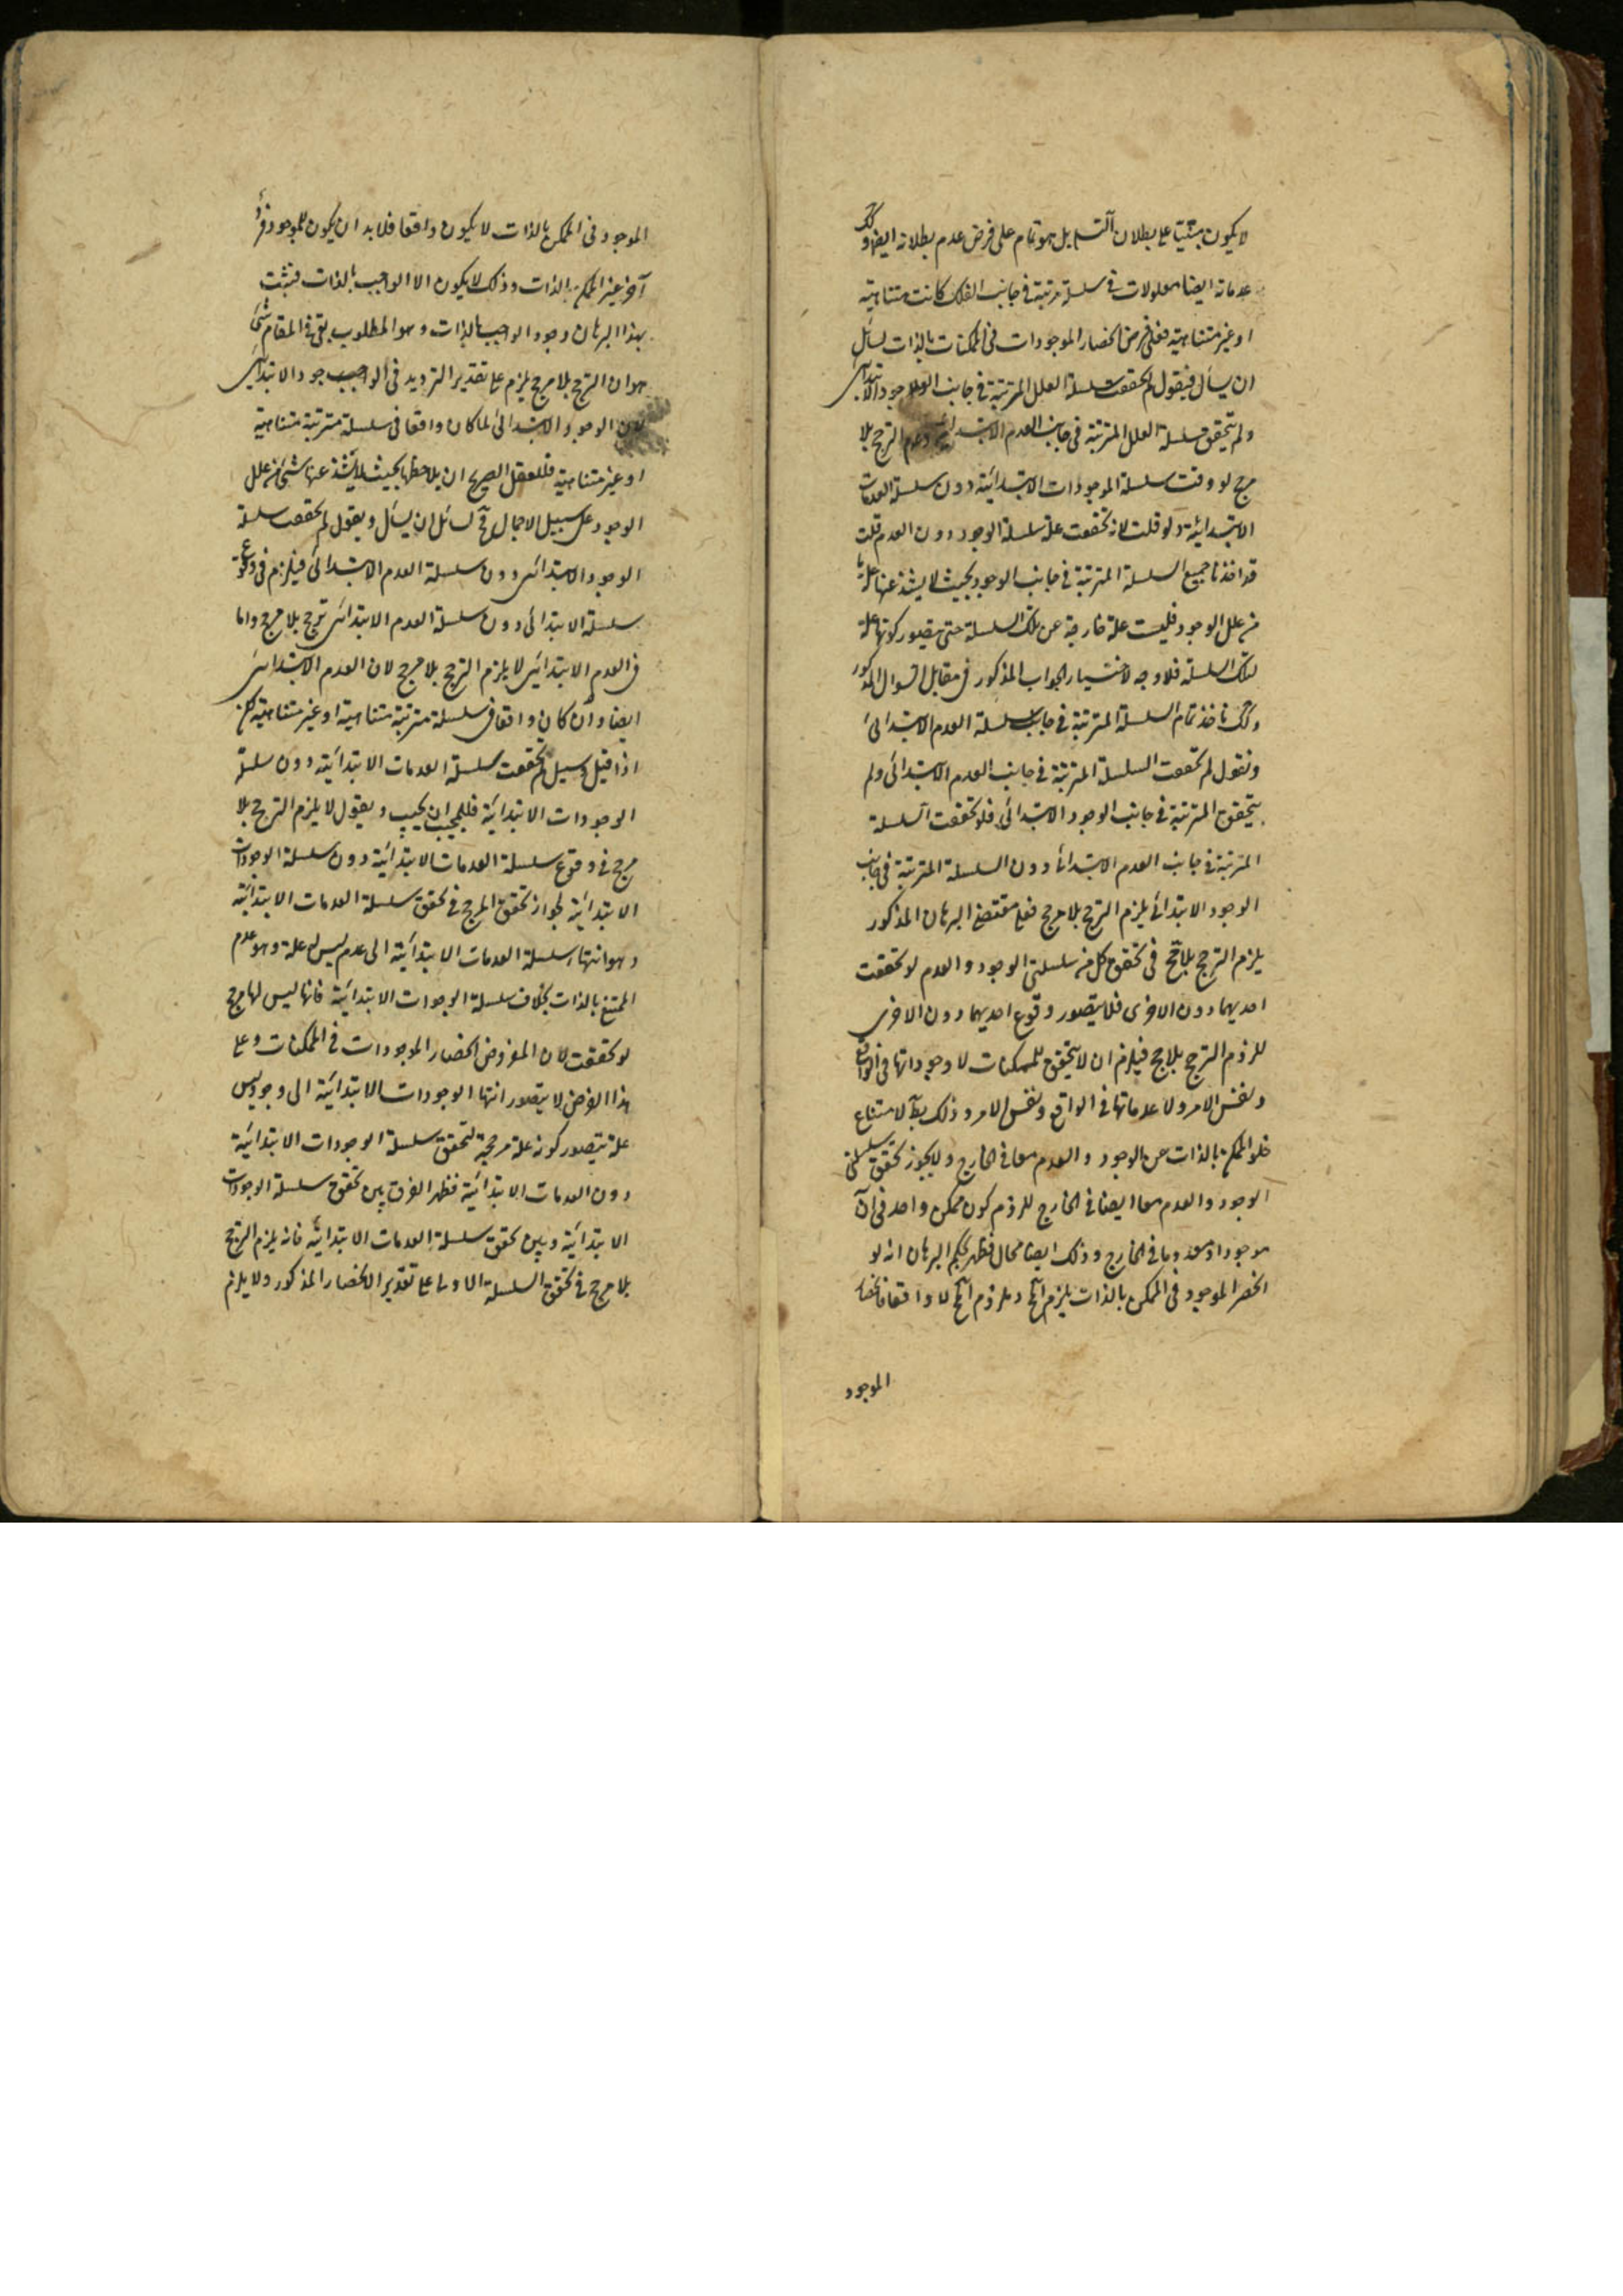 لا يكون مبتنيا على بطلان التسلسل بل هو تمام على فرض عدم بطلانه ايضا وكك
عدماته ايضا معلولات فى سلسلة مرتبة فى جانب الفلك كانت متناهية
او غير متناهية فعلى فرض انحصار الموجودات فى الممكنات بالذات لسائل
ان يسأل فيقول لم تحققت سلسلة العلل المترتبة فى جانب الوجود الابتدائى
ولم يتحقق سلسلة العلل المترتبة فى جانب العدم الابتدائى الترجح بلا
مرجح لو وقعت سلسلة الموجودات الابتدائية دون سلسلة العدمات
الابتدائية ولو قلت لانه تحققت علة سلسلة الوجود دون العدم قلت
قد اخذنا جميع السلسلة المترتبة فى جانب الوجود بحيث لا يشذ عنها علة
من علل الوجود فليست علة خارجة عن تلك السلسلة حتى يتصور كونها علة
لتلك السلسلة فلا وجه لاختيار الجواب المذكور فى مقابل السؤال المذكور
وكك ناخذ تمام السلسلة المترتبة فى جانب سلسلة العدم الابتدائى
ونقول لم تحققت السلسلة المترتبة فى جانب العدم الابتدائى ولم
يتحقق المترتبة فى جانب الوجود الابتدائى فلو تحققت السلسلة
المترتبة فى جانب العدم الابتدائى دون السلسلة المترتبة فى جانب
الوجود الابتدائى يلزم الترجح بلا مرجح فعلى مقتضى البرهان المذكور
يلزم الترجح بلا مرجح فى تحقق كل من سلسلتى الوجود والعدم لو تحققت
احديهما دون الاخرى فلا يتصور وقوع احديهما دون الاخرى
للزوم الترجح بلا مرجح فيلزم ان لا يتحقق للممكنات لا وجوداتها فى الواقع
ونفس الامر ولا عدماتها فى الواقع ونفس الامر وذلك بط لامتناع
خلو الممكن بالذات عن الوجود والعدم معا فى الخارج ولا يجوز تحقق سلسلتى
الوجود والعدم معا ايضا فى الخارج للزوم كون ممكن واحد فى آن
موجودا ومعدوما فى الخارج وذلك ايضا محال فظهر بحكم البرهان انه لو
انحصر الموجود فى الممكن بالذات يلزم المح وملزوم المح لا واقعا فانحصار
الموجود
الموجود فى الممكن بالذات لا يكون واقعا فلابد ان يكون للموجود فرد
آخر غير الممكن بالذات وذلك لا يكون الا الواجب بالذات فثبت
بهذا البرهان وجود الواجب بالذات وهو المطلوب بقى فى المقام شئ
هو ان الترجح بلا مرجح يلزم على تقدير الترديد فى الوجود الابتدائى
لان الوجود الابتدائى لما كان واقعا فى سلسلة مترتبة متناهية
او غير متناهية فللعقل الصريح ان يلاحظها بحيث لا يشذ عنها شئ من علل
الوجود على سبيل الاجمال فح لسائل ان يسأل ويقول لم تحققت سلسلة
الوجود الابتدائى دون سلسلة العدم الابتدائى فيلزم فى وقوع
سلسلة الابتدائى دون سلسلة العدم الابتدائى ترجح بلا مرجح واما
فى العدم الابتدائى لا يلزم الترجح بلا مرجح لان العدم الابتدائى
ايضا وان كان واقعا فى سلسلة مترتبة متناهية او غير متناهية لكن
اذا قيل وسيل لم تحققت سلسلة العدمات الابتدائية دون سلسلة
الوجودات الابتدائية فللمجيب ان يجيب ويقول لا يلزم الترجح بلا
مرجح فى وقوع سلسلة العدمات الابتدائية دون سلسلة الوجودات
الابتدائية لجواز تحقق المرجح فى تحقق سلسلة العدمات الابتدائية
وهو انتهاء سلسلة العدمات الابتدائية الى عدم ليس له علة وهو عدم
الممتنع بالذات بخلاف سلسلة الوجودات الابتدائية فانها ليس لها مرجح
لو تحققت لان المفروض انحصار الموجودات فى الممكنات وعلى
هذا الفرض لا يتصور انتهاء الوجودات الابتدائية الى وجود ليس
علة يتصور كونه علة مرجحة لتحقق سلسلة الوجودات الابتدائية
دون العدمات الابتدائية فظهر الفرق بين تحقق سلسلة الوجودات
الابتدائية وبين تحقق سلسلة العدمات الابتدائية فانه يلزم الترجح
بلا مرجح فى تحقق السلسلة الاولى على تقدير الانحصار المذكور ولا يلزم